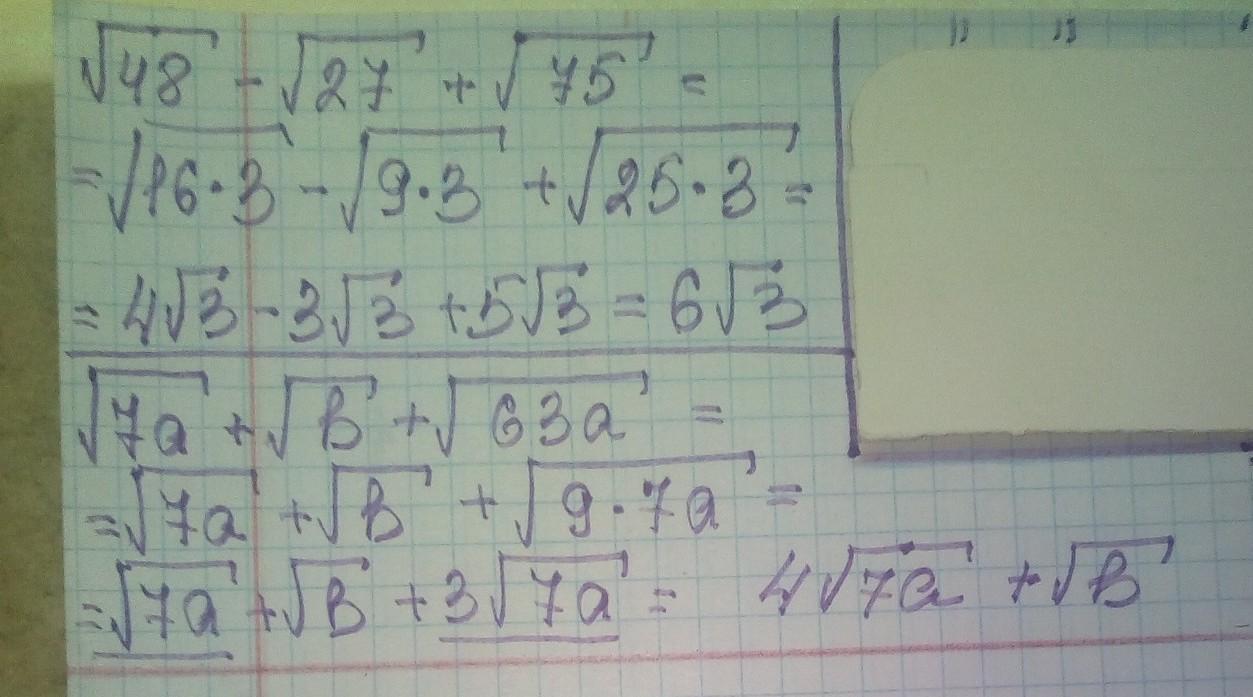 √48 - √27 + √75 =
= √16·3 - √9·3 + √25·3 =
= 4√3 - 3√3 + 5√3 = 6√3
√7a + √B + √63a =
= √7a + √B + √9·7a =
= √7a + √B + 3√7a = 4√7a + √B